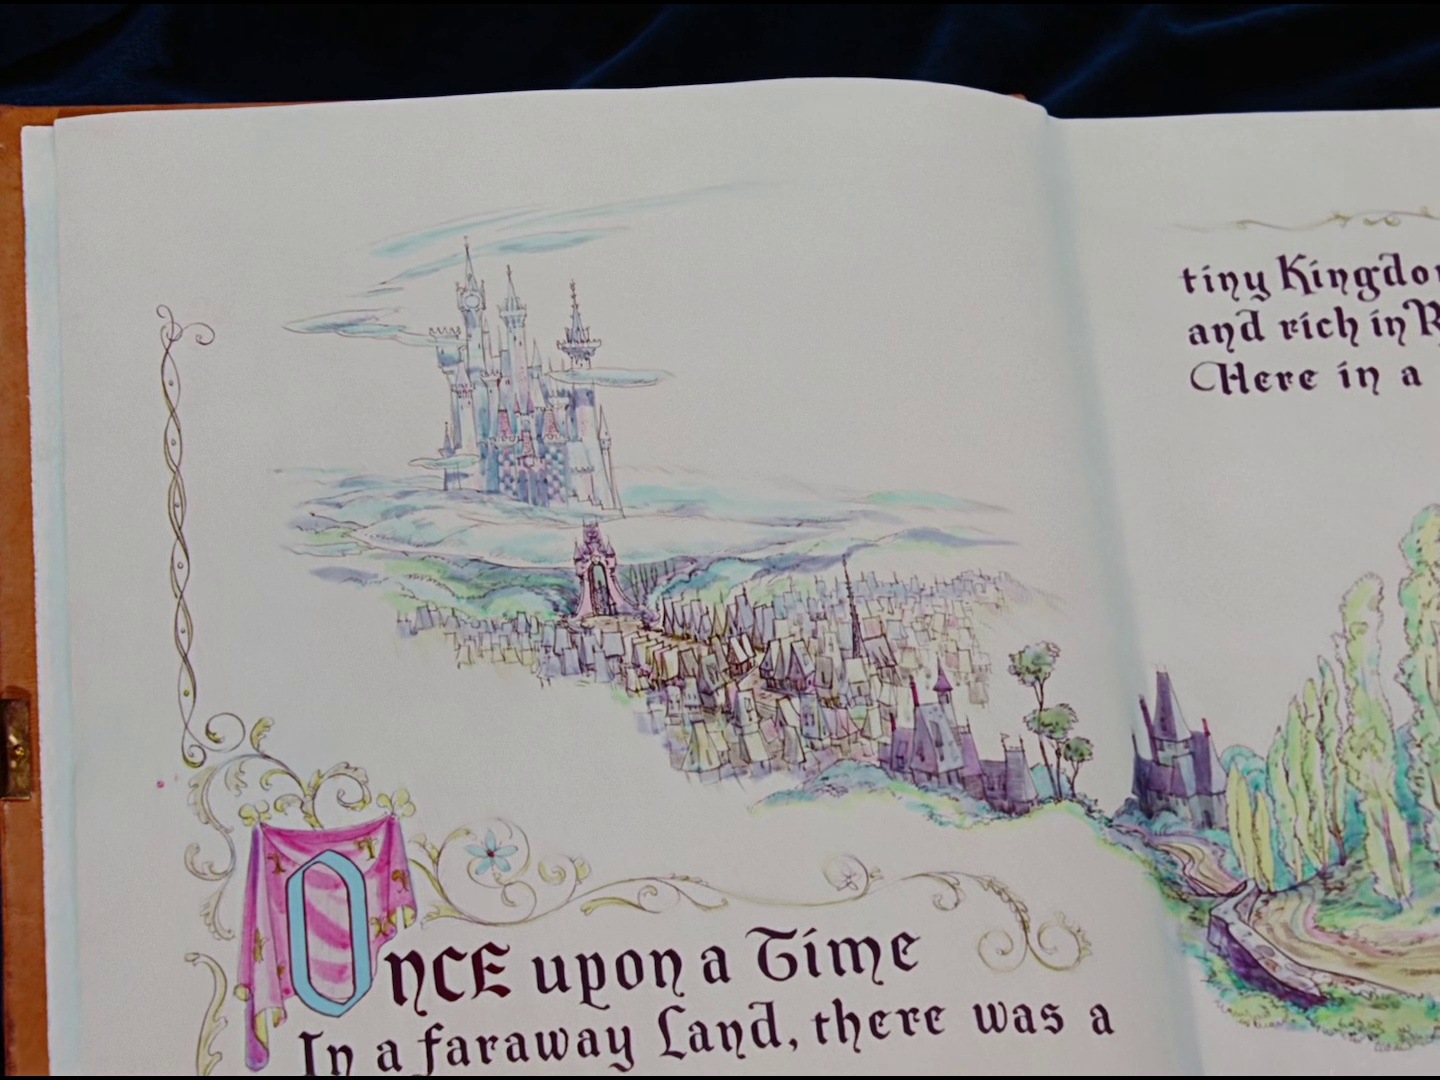 Once upon a Time
In a faraway Land, there was a
tiny
and rich in
Here in a